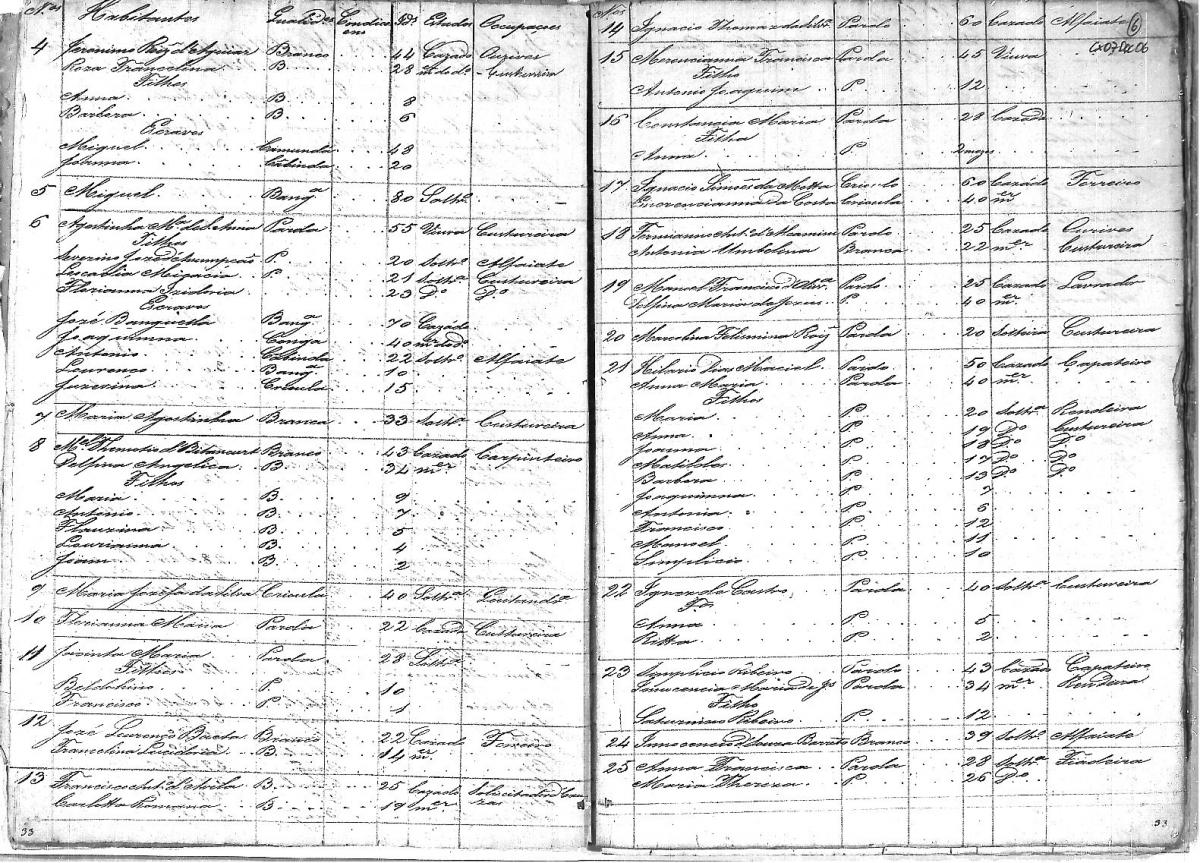 N.os Habitantes Qualid.es Idd.s Estados Occupações
4 Jeronimo Roiz d'Aguiar Branco 44 Cazado Ourives
Roza Francelina B. 28 m.er do d.o Custureira
Filhos
Anna B. 8
Barbara B. 6
Escravos
Miguel Camunda 48
Joanna Cabinda 20
5 Miguel Bang.a 80 Solt.o
6 Agostinha M.a Parda 55 Viuva Custureira
Filhos
Severino José d'Assumpção P. 20 Solt.o Alfaiate
Leocadia P. 21 Solt.a Custureira
Florianna Izidoria 23 D.o D.o
Escravos
José Banguella Bang.a 70 Cazado
Joaquinna Conga 40 m.er
Antonio Cabinda 22 Solt.o Alfaiate
Lourenço Bang.a 10
Juzezina Crioula 15
7 Maria Agostinha Branca 33 Solt.a Custureira
8 M.el d'Bitancurt Branco 43 Cazado Carpinteiro
Delfina Angelica B. 34 m.er
Filhos
Maria B. 9
Antonio B. 7
Flauzina B. 5
Laurianna B. 4
B. 2
9 Maria Jozefa da Silva Crioula 40 Solt.a Quitand.a
10 Florianna Maria Parda 22 Cazada Custureira
11 Jacinta Maria Parda 28 Solt.a
Filhos
Belchior P. 10
Francisco P. 1
12 José Lourenço Branco 22 Cazado Ferreiro
Francelina B. 14 m.er
13 Francisco Ant.o d'Avila B. 25 Cazado Solicitador d'Cau
zas
Carlotta Romana B. 19 m.er
33
N.os
14 Ignacio Thomaz da Silv.a Pardo 60 Cazado Alfaiate 6
15 Merencianna Francisca Parda 45 Viuva
Filho
Antonio Joaquim P. 12
16 Constancia Maria Parda 28 Cazada
Filha
Anna P. 2 mezes
17 Ignacio Simoes da Motta Crioulo 60 Cazado Ferreiro
da Costa Crioula 40 m.er
18 Firmianno Ant.o d' Pardo 25 Cazado Ourives
Antonia Umbelina Branca 22 m.er Custureira
19 Manoel Francisco d'Oliv.a Pardo 25 Cazado Lavrador
Delfina Maria de Jezus P. 40 m.er
20 Marcolina Felesmina Roiz Parda 20 Solteira Custureira
21 Hilario Dias Maciel Pardo 50 Cazado Çapateiro
Anna Maria Parda 40 m.er
Filhos
Maria P. 20 Solt.a Rendeira
Anna P. 19 D.o Custureira
Joanna P. 18 D.o D.o
Matildes P. 17 D.o D.o
Barbara P. 13 D.o D.o
Joaquinna P. 7
Antonia P. 6
Francisco P. 12
Manoel P. 11
Simplicio P. 10
22 Ignez de Castro Parda 40 Solt.a Custureira
F.os
Anna P. 5
Ritta P. 2
23 Simplicio Ribeiro Pardo 43 Cazado Çapateiro
Innocencia Maria de Js Parda 34 m.er Rendeira
Filho
Saturnino Ribeiro P. 12
24 Innocencio d'Souza Barreto Branco 39 Solt.o Alfaiate
25 Anna Francisca Parda 28 Solt.a Fiadeira
Maria Thereza P. 26 D.o
33